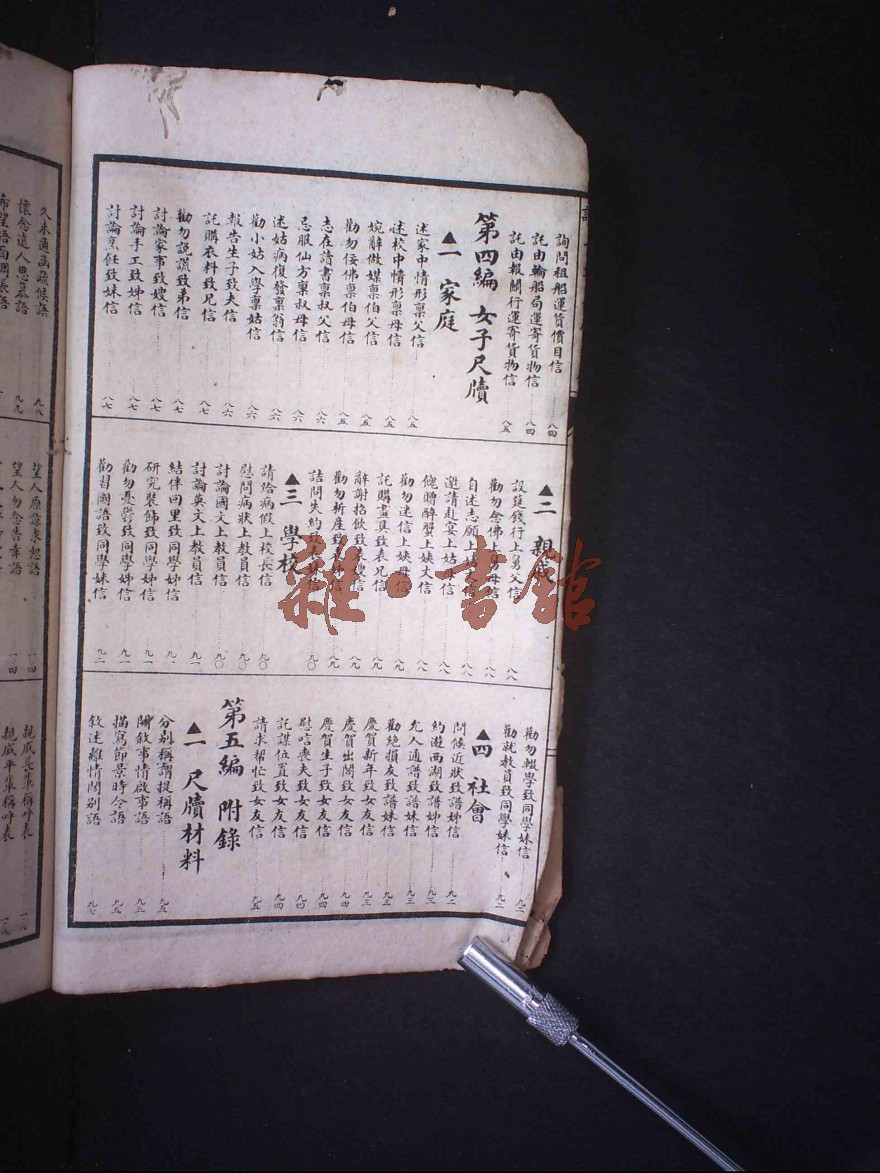 詢問租船運貨價目信 八四
託由輪船局運寄貨物信 八四
託由報關行運寄貨物信 八五
第四編 女子尺牘
▲一 家庭
述家中情形稟父信 八五
述校中情形稟母信 八五
婉辭做媒稟伯父信 八五
勸勿佞佛稟伯母信 八五
志在讀書稟叔父信 八六
忌服仙方稟叔母信 八六
述姑病復發稟翁信 八六
勸小姑入學稟姑信 八六
報告生子致夫信 八六
託購衣料致兄信 八七
勸勿說謊致弟信 八七
討論家事致嫂信 八七
討論手工致姊信 八七
討論烹飪致妹信 八七
▲二 親戚
設筵餞行上舅父信 八八
勸勿念佛上舅母信 八八
自述志願上姑 信 八八
邀請赴宴上姑母信 八八
餽贈醉蟹上姨丈信 八八
勸勿迷信上姨母信 八九
託購畫具致表兄信 八九
辭謝招飲致表嫂信 八九
勸勿析產致表 信 八九
詰問失約致表 信 九〇
▲三 學校
請給病假上校長信 九〇
慰問病狀上教員信 九〇
討論國文上教員信 九〇
討論英文上教員信 九一
結伴回里致同學姊信 九一
研究裝飾致同學姊信 九一
勸勿憂鬱致同學姊信 九一
勸習國語致同學妹信 九二
勸勿輟學致同學妹信 九二
勸就教員致同學妹信 九二
▲四 社會
問候近狀致譜姊信 九二
約遊西湖致譜姊信 九三
允人通譜致譜妹信 九三
勸絕損友致譜妹信 九三
慶賀新年致女友信 九三
慶賀出閣致女友信 九四
慶賀生子致女友信 九四
慰唁喪夫致女友信 九四
託謀位置致女友信 九四
請求幫忙致女友信 九五
第五編 附錄
▲一 尺牘材料
分別稱謂提稱語 九五
關敘事情啟事語 九五
描寫節景時令語 九五
敘述離情闊別語 九七
久未通函疏候語 九八
懷念遠人思慕語 九九
希望晤面 語
望人原諒求恕語 一一四
望人勿念告幸語 一一四
親戚長輩稱呼表 一一八
親戚平輩稱呼表 一一八
雜·書館